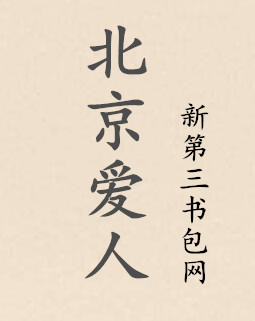 北京爱人
新第三书包网